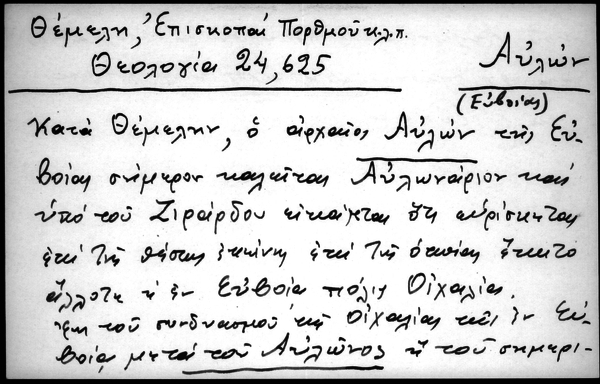 Θέμελη, Ἐπισκοπαί Πορθμοῦ κ.λ.π.
Θεολογία 24,625
Αὐλών
(Εὐβοίας)
Κατά Θέμελην, ὁ ἀρχαῖος Αὐλών τῆς Εὐ-
βοίας σήμερον καλεῖται Αὐλωνάριον καί
ὑπό τοῦ Ζιράρδου εἰκάζεται ὅτι εὑρίσκεται
ἐπί τῆς θέσεως ἐκείνης ἐπί τῆς ὁποίας ἔκειτο
ἄλλοτε ἡ ἐν Εὐβοίᾳ πόλις Οἰχαλίας.
Ἐκ τοῦ συνδυασμοῦ τῆς Οἰχαλίας τῆς ἐν Εὐ-
βοίᾳ μετά τοῦ Αὐλῶνος ἤ τοῦ σημερι-